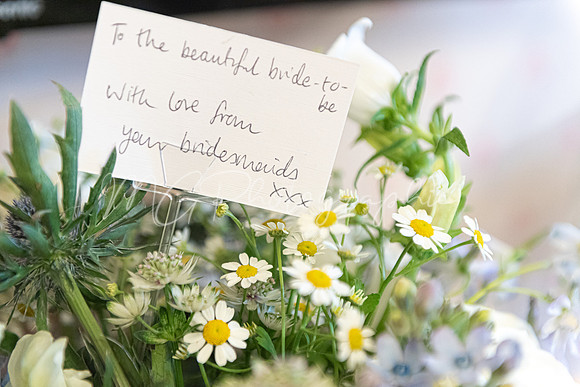 To the beautiful bride-to-
be
With love from
your bridesmaids
xxx